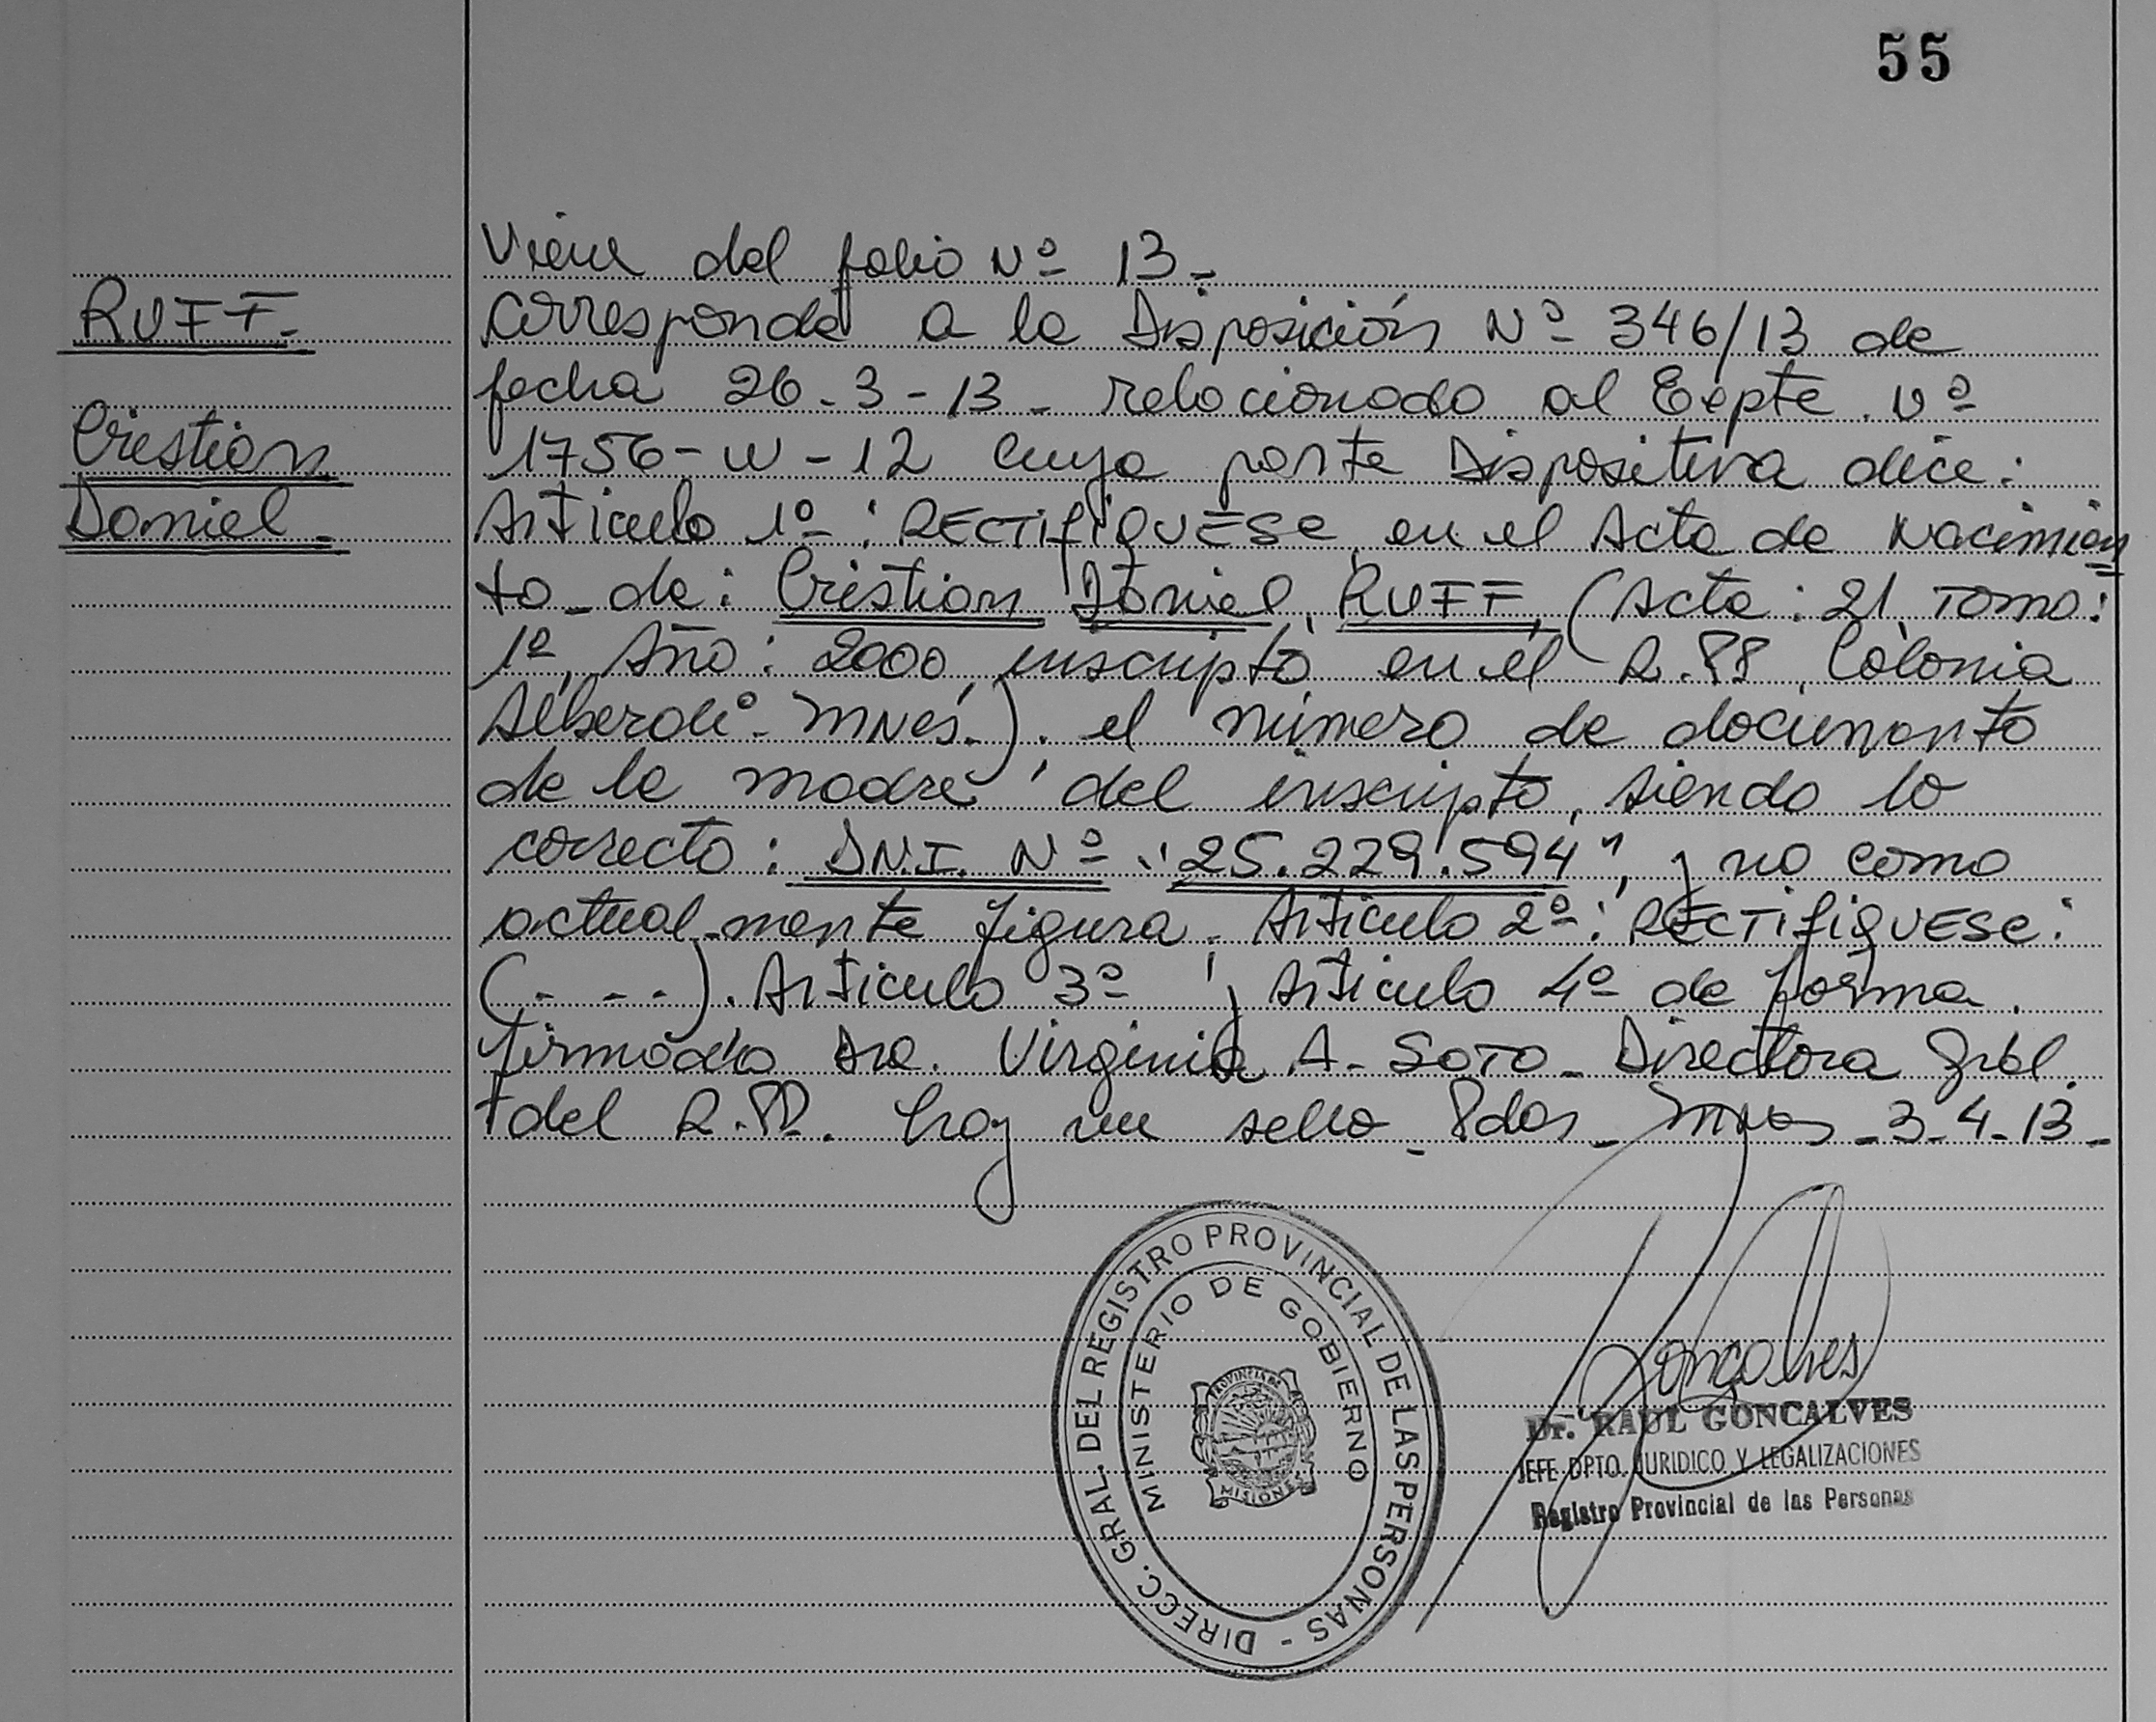 55
RUFF.
Cristian
Daniel.
Viene del folio Nº 13.
Corresponde a la Disposición Nº 346/13 de
fecha 26-3-13. relacionado al Expte. Nº
1756-W-12 cuya parte Dispositiva dice:
Articulo 1º: RECTIFIQUESE, en el Acta de Nacimien
to de: Cristian Daniel, RUFF, (Acta: 21, Tomo:
1º, Año: 2000, inscripto en el R.PP, Colonia
Alberdi - Mnes.). el número de documento
de la madre del inscripto, siendo lo
correcto: D.N.I. Nº "25.229.594", y no como
actualmente figura. Articulo 2º: RECTIFIQUESE:
(...). Articulo 3º y Articulo 4º de forma.
firmado Dra. Virginia A. SOTO. Directora Gral.
del R.PP. hay un sello. Pdas. Mnes. 3-4-13.
DIRECC. GRAL. DEL REGISTRO PROVINCIAL DE LAS PERSONAS -
MINISTERIO DE GOBIERNO
PROVINCIA DE
MISIONES
Goncalves
Dr. RAUL GONCALVES
JEFE DPTO. JURIDICO Y LEGALIZACIONES
Registro Provincial de las Personas